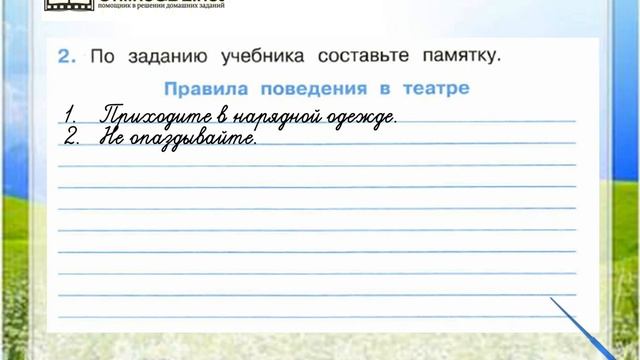 помощник в решении домашних заданий
2. По заданию учебника составьте памятку.
Правила поведения в театре
1. Приходите в нарядной одежде.
2. Не опаздывайте.